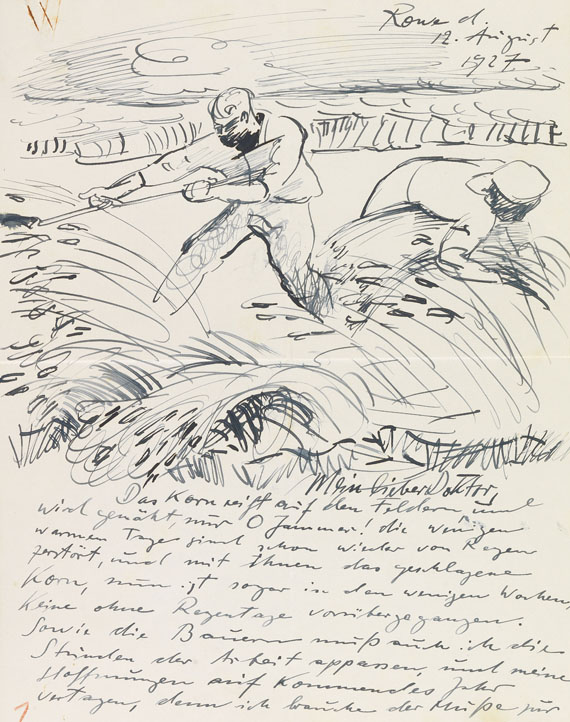 Rowe d.
12. August
1927
Mein lieber Doktor,
Das Korn reift auf den Feldern und
wird gemäht, nur O Jammer! die wenigen
warmen Tage sind schon wieder von Regen
zerstört, und mit Ihnen das geschlagene
Korn, nun ist sogar in den wenigen Wochen,
Keine ohne Regentage vorübergegangen.
Sowie die Bauern muß auch ich die
Stunden der Arbeit appassen, und meine
Hoffnungen auf Kommendes Jahr
vertagen, denn ich brauche der Muße zur